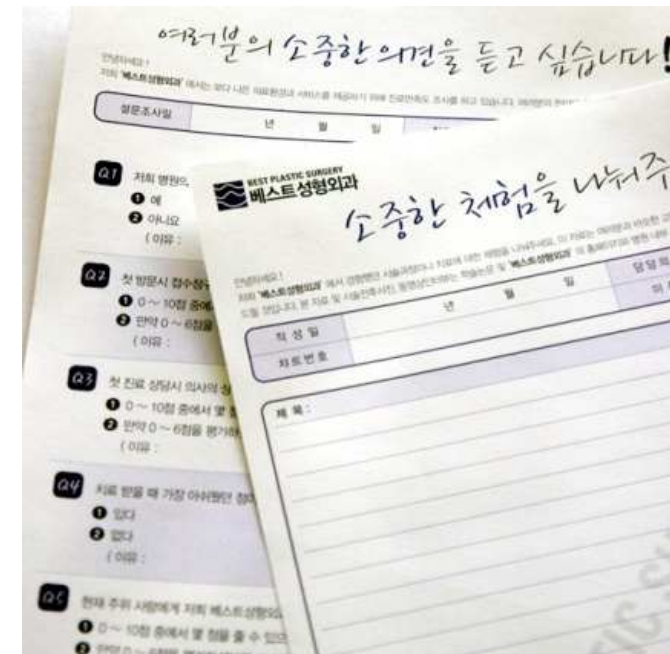 여러분의 소중한 의견을 듣고 싶습니다!
안녕하세요!
저희 '베스트성형외과' 에서는 보다 나은 의료환경과 서비스를 제공하기 위해 진료만족도 조사를 하고 있습니다.
설문조사일 년 월 일
Q1 저희 병원의
❶ 예
❷ 아니요
( 이유 :
Q2 첫 방문시 접수창구
❶ 0 ~ 10점 중에
❷ 만약 0 ~ 6점을
( 이유 :
Q3 첫 진료 상담시 의사의 상
❶ 0 ~ 10점 중에서 몇
❷ 만약 0 ~ 6점을 평가하
( 이유 :
Q4 치료 받을 때 가장 아쉬웠던 점이
❶ 있다
❷ 없다
( 이유 :
Q5 현재 주위 사람에게 저희 베스트성형외
❶ 0 ~ 10점 중에서 몇 점을 줄 수 있으
❷ 만약 0 ~ 6점을
BEST PLASTIC SURGERY
베스트성형외과
소중한 체험을 나눠주
안녕하세요!
저희 '베스트성형외과' 에서 경험했던 시술과정이나 치료에 대한 체험을 나눠주세요. 이 자료는 여러분과 비슷한
도움될 것입니다. 본 자료 및 시술전후사진, 동영상인터뷰는 학술논문 및 '베스트성형외과' 의 홈페이지와 병원 내부
작성일 년 월 일 담당의
차트번호
제 목 :